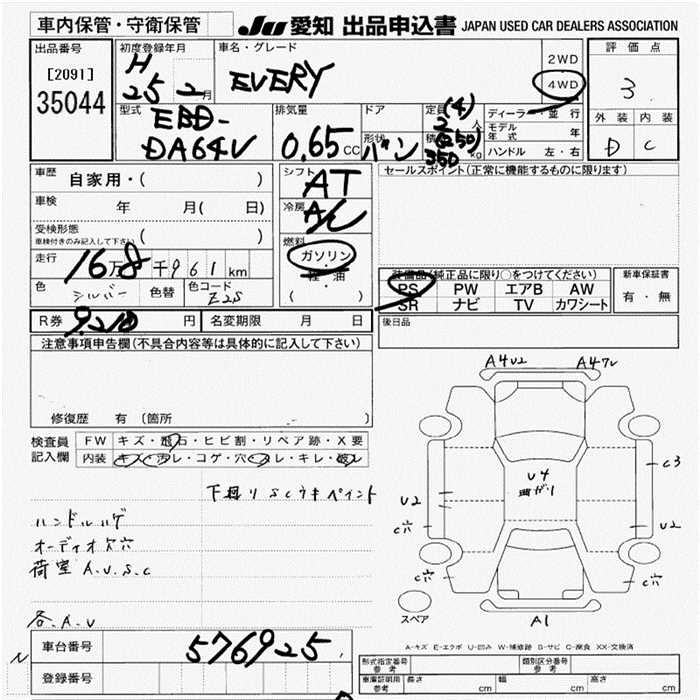 車内保管・守衛保管
JU 愛知 出品申込書 JAPAN USED CAR DEALERS ASSOCIATION
出品番号
[2091]
35044
初度登録年月
H
25 2月
車名・グレード
EVERY
2WD
4WD
評価点
3
外装 内装
D C
型式
EBD-
DA64V
排気量
0.65 CC
ドア
形状
バン
定員
(4)
2人
積
(250)
350 kg
ディーラー・並行
モデル年式 年
ハンドル 左・右
車歴
自家用・( )
車検 年 月( 日)
受検形態
車検付きのみ記入して下さい ( )
走行
16万8千961km
色 シルバー 色替 色コード Z2S
シフト
AT
冷房
A/C
燃料
ガソリン
軽・油
( )
セールスポイント(正常に機能するものに限ります)
装備品(純正品に限り○をつけてください)
PS PW エアB AW
SR ナビ TV カワシート
新車保証書
有・無
後日品
R券 9,210 円 名変期限 月 日
注意事項申告欄(不具合内容等は具体的に記入して下さい)
修復歴 有 〔箇所
検査員
記入欄
FW キズ・飛石・ヒビ割・リペア跡・X要
内装 キズ・汚レ・コゲ・穴・スレ・キレ・破レ
下廻りSCサキペイント
ハンドルハゲ
オーディオ欠穴
荷室A.U.S.C
各A.U
A4U2 A4ワレ
U4
曲がり
C3
U2
C穴
U2
C穴
C穴
C穴
スペア
A1
A-キズ E-エクボ U-凹み W-補修跡 S-サビ C-腐食 XX-交換済
車台番号 576925
登録番号
N
形式指定番号
参考
類別区分番号
参考
車庫証明用
参考
長さ cm 幅 cm 高さ cm